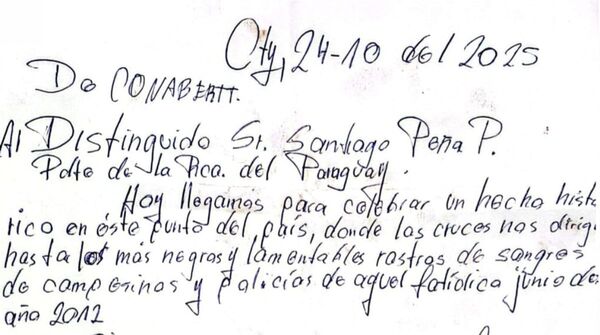 Cty, 24-10 del 2025
De CONABERTT.
Al Distinguido Sr. Santiago Peña P.
Pdte de la Rca. del Paraguay.
Hoy llegamos para celebrar un hecho histo
rico en éste punto del país, donde las cruces nos dirig
hasta los más negros y lamentables rastros de sangres
de campesinos y policías de aquel fatídica junio del
año 2012